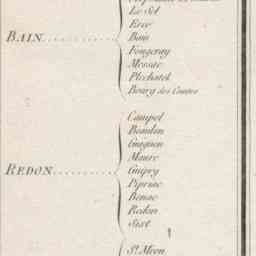 Le Sel
Ercé
BAIN............ Bain
Fougeray
Messac
Plechatel
Bourg des Comtes
Campel
Baudun
Guignen
Maure
REDON............ Guipry
Pipriac
Renac
Redon
Sixt
St. Méen